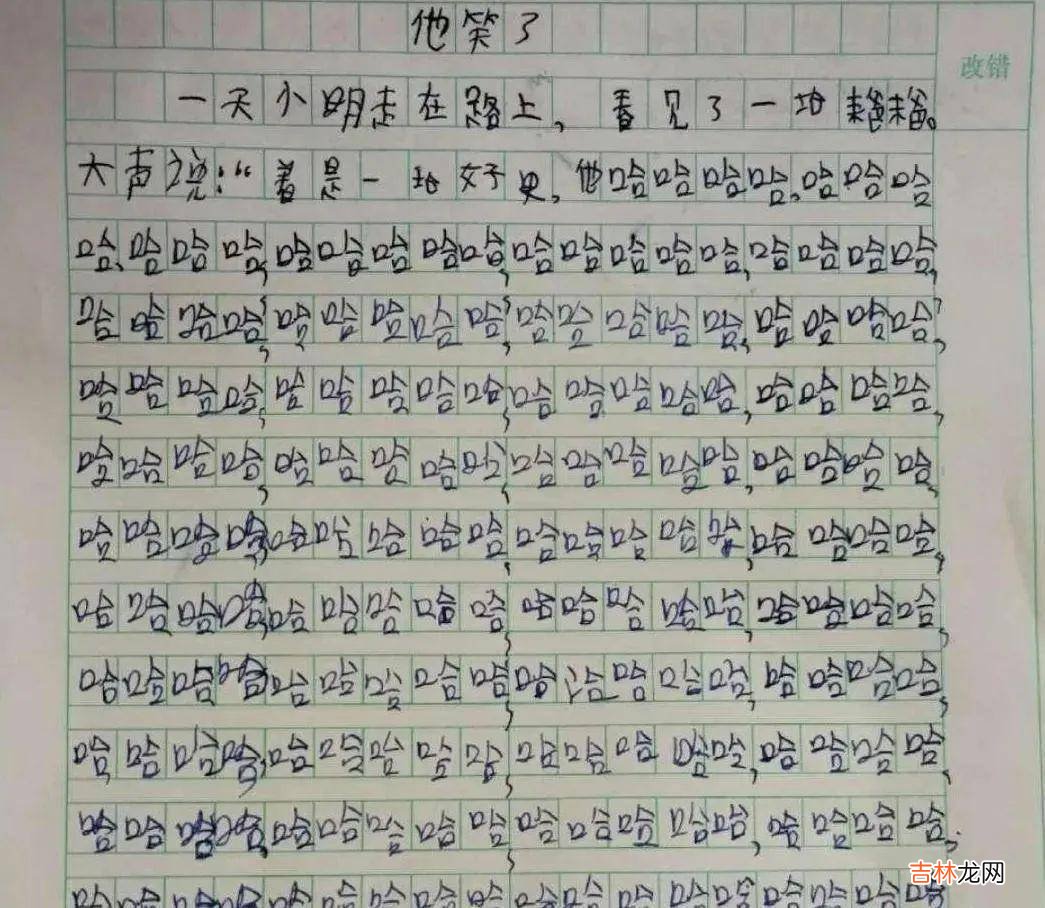 他笑了
改错
一天小明走在路上,看见了一地
大声说:“着是一地好史,他哈哈哈哈,哈哈哈
哈、哈哈哈,哈哈哈哈哈,哈哈哈哈哈,哈哈哈哈,
哈哈哈哈,哈哈哈哈哈,哈哈哈哈哈,哈哈哈哈,
哈哈哈哈,哈哈哈哈哈,哈哈哈哈哈,哈哈哈哈,
哈哈哈哈,哈哈哈哈哈,哈哈哈哈哈,哈哈哈哈,
哈哈哈哈,哈哈哈哈哈,哈哈哈哈哈,哈哈哈哈,
哈哈哈哈,哈哈哈哈哈,哈哈哈哈哈,哈哈哈哈,
哈哈哈哈,哈哈哈哈哈,哈哈哈哈哈,哈哈哈哈,
哈哈哈哈,哈哈哈哈哈,哈哈哈哈哈,哈哈哈哈,
哈哈哈哈,哈哈哈哈哈,哈哈哈哈哈,哈哈哈哈,
哈哈哈哈哈哈哈哈哈哈哈哈哈哈哈哈哈哈
吉林龙网